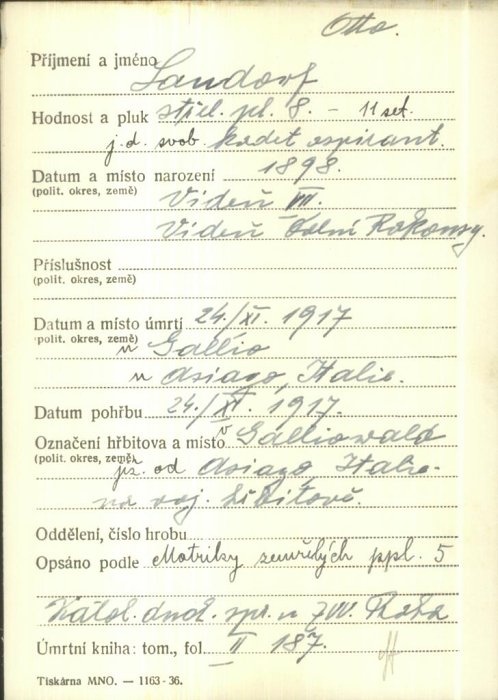 Otto.
Příjmení a jméno Landorf
Hodnost a pluk střel. pl. 8. - 11 set.
j. d. svob. kadet aspirant.
Datum a místo narození 1898.
(polit. okres, země) Vídeň VIII.
Vídeň Dolní Rakousy.
Příslušnost
(polit. okres, země)
Datum a místo úmrtí 24./XI. 1917
(polit. okres, země) u Gallio
u Asiago, Italie.
Datum pohřbu 24./XI. 1917.
Označení hřbitova a místo v Galliowald
(polit. okres, země) již. od Asiago, Italie-
na voj. hřbitově.
Oddělení, číslo hrobu
Opsáno podle Matriky zemřelých ppl. 5
Katol. duch. spr. u ZVV. Praha
Úmrtní kniha: tom., fol. II 187.
Tiskárna MNO. — 1163-36.